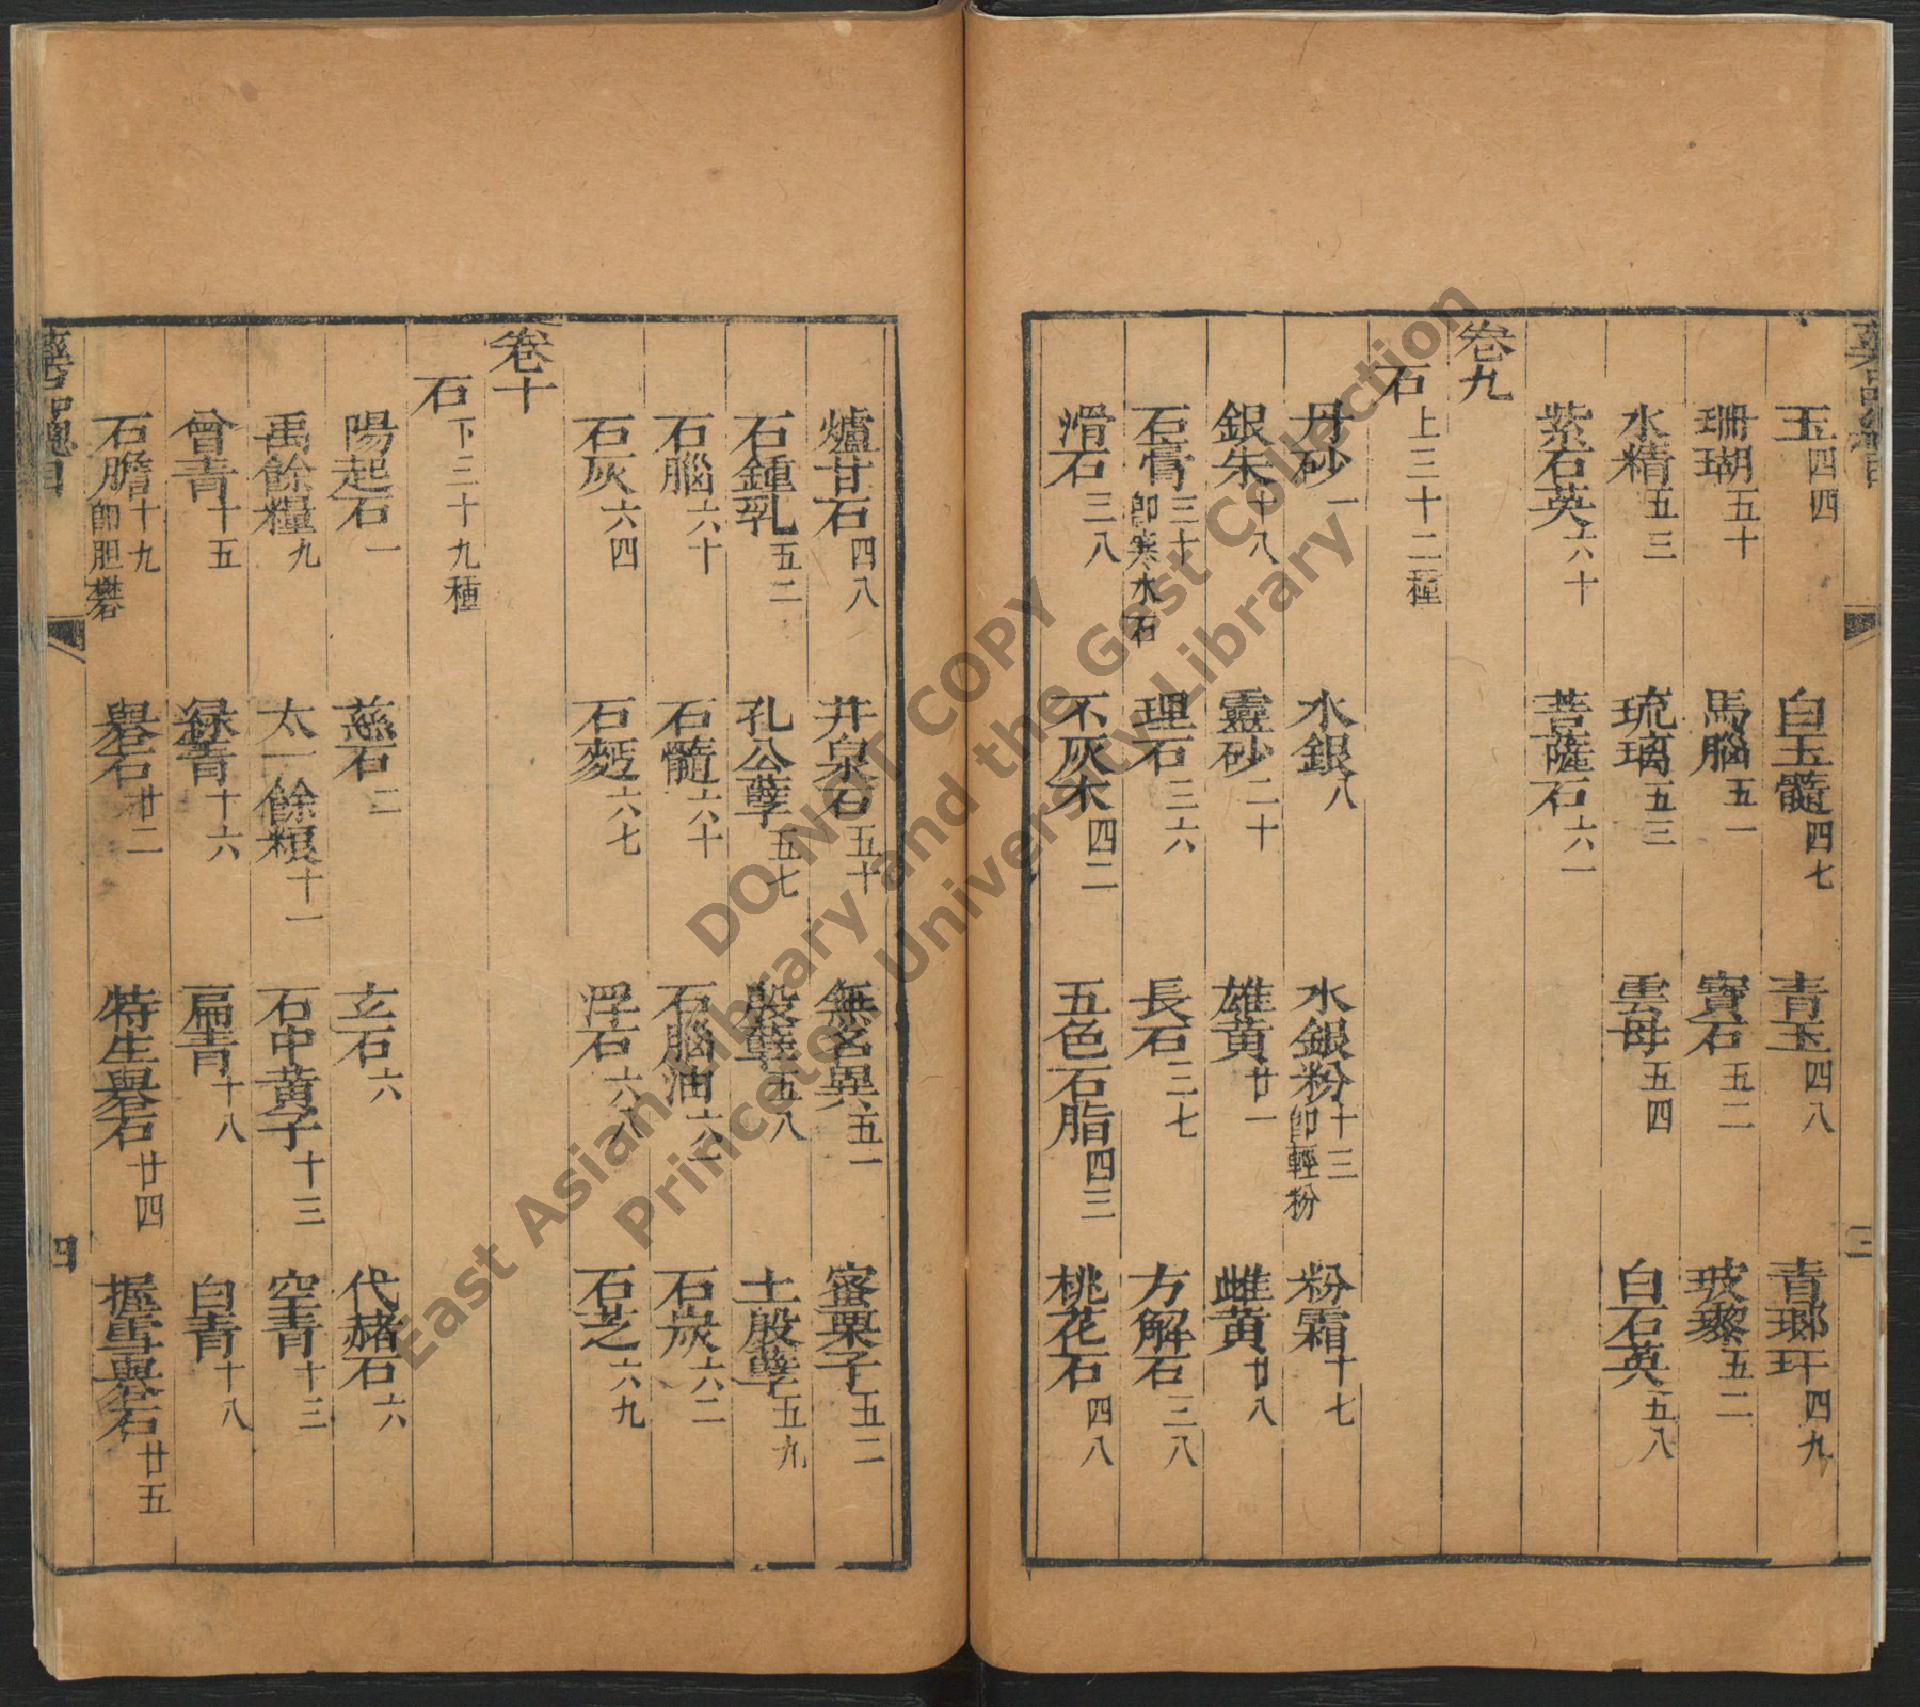 玉四四　白玉髓四七　青玉四八　青瑯玕四九
珊瑚五十　馬腦五一　寶石五二　玻瓈五二
水精五三　琉璃五三　雲母五四　白石英五八
紫石英六十　菩薩石六一
卷九
石上三十二種
丹砂一　水銀八　水銀粉十三即輕粉　粉霜十七
銀朱十八　靈砂二十　雄黃廿一　雌黃廿八
石膏三十即寒水石　理石三六　長石三七　方解石三八
滑石三八　不灰木四二　五色石脂四三　桃花石四八
爐甘石四八　井泉石五十　無名異五一　蜜栗子五二
石鍾乳五二　孔公孽五七　殷孽五八　土殷孽五九
石腦六十　石髓六十　石腦油六一　石炭六二
石灰六四　石麪六七　浮石六八　石芝六九
卷十
石下三十九種
陽起石一　慈石二　玄石六　代赭石六
禹餘糧九　太一餘糧十一　石中黃子十三　空青十三
曾青十五　綠青十六　扁青十八　白青十八
石膽十九即胆礬　礜石廿二　特生礜石廿四　握雪礜石廿五
四
三
DO NOT COPY
East Asian Library and the Gest Collection
Princeton University Library